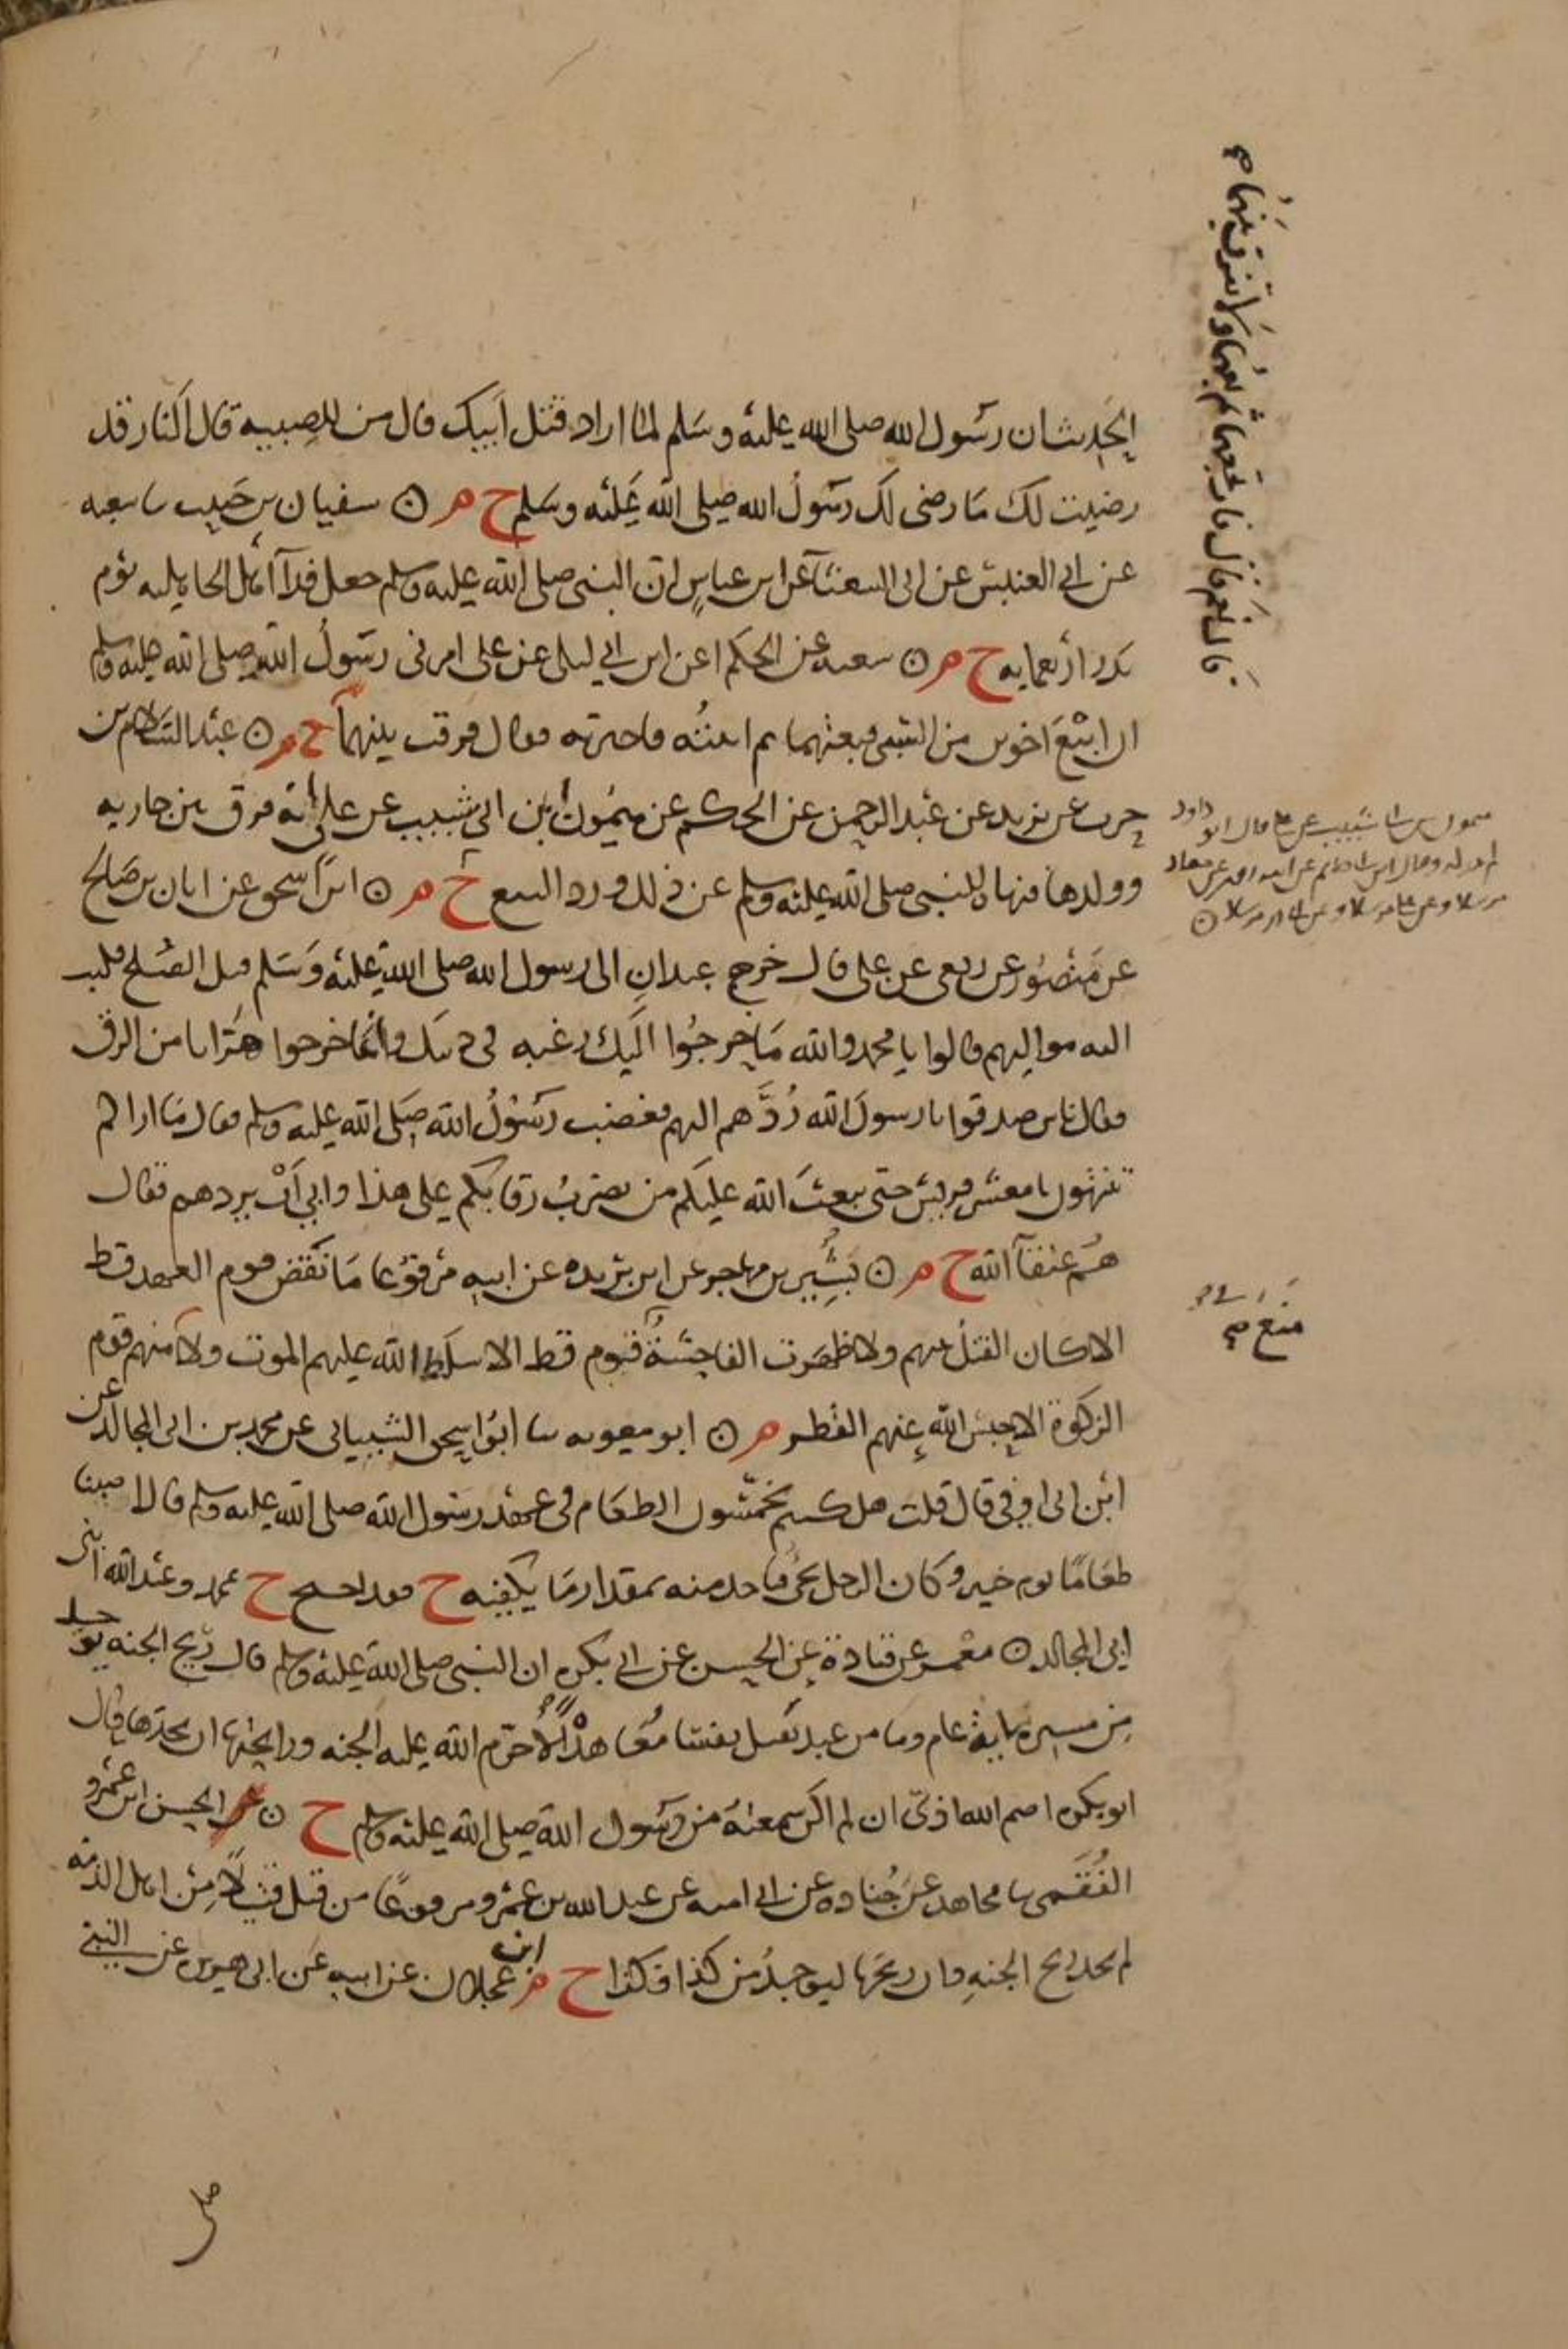 الحديث ان رسول الله صلى الله عليه وسلم لما اراد قتل ابيك قال من للصبية قال النار قد
رضيت لك ما رضى لك رسول الله صلى الله عليه وسلم ح م ں سفيان بن حبيب نا شعبه
عن ابي العنبس عن ابى الشعثآ عن ابن عباس ان النبي صلى الله عليه وسلم جعل فدآ اهل الجاهليه يوم
بدر اربعمايه ح م ں شعبه عن الحكم عن ابن ابي ليلى عن على امرنى رسول الله صلى الله عليه وسلم
ان ابتع اخوين من السبى فبعتهما ثم اتيته فاخبرته فقال فرقت بينهما ح م ں عبد السلام بن
حرب عن يزيد عن عبد الرحمن عن الحكم عن ميمون ابن ابي شبيب عن على انه فرق بين جاريه
وولدها فنهاه النبي صلى الله عليه وسلم عن ذلك ورد البيع ح م ں ابن اسحق عن ابان بن صالح
عن منصور عن ربعى عن على قال خرج عبدان الى رسول الله صلى الله عليه وسلم قبل الصلح فكتب
اليه مواليهم قالوا يا محمد والله ما خرجوا اليك رغبه في دينك وانما خرجوا هربا من الرق
فقال ناس صدقوا يا رسول الله ردهم اليهم فغضب رسول الله صلى الله عليه وسلم فقال ما اراكم
تنتهون يا معشر قريش حتى يبعث الله عليكم من يضرب رقابكم على هذا وابى ان يردهم فقال
هم عتقآ الله ح م ں بشير بن مهاجر عن ابن بريده عن ابيه مرفوعا ما نقض قوم العهد قط
الا كان القتل بينهم ولا ظهرت الفاحشة فى قوم قط الا سلط الله عليهم الموت ولا منهم قوم
الزكوة الا حبس الله عنهم القطر م ں ابو معويه نا ابو اسحق الشيبانى عن محمد بن ابى المجالد عن
ابن ابى اوفى قال قلت هل كنتم تخمسون الطعام فى عهد رسول الله صلى الله عليه وسلم قال اصبنا
طعاما يوم خيبر وكان الرجل يجى فياخذ منه بمقدار ما يكفيه ح فقد احتج ح بمحمد وعبد الله ابنى
ابى المجالد ں معمر عن قتادة عن الحسن عن ابي بكره ان النبي صلى الله عليه وسلم قال ريح الجنه يوجد
من مسيره ماية عام وما من عبد يقتل نفسا معاهدة الا حرم الله عليه الجنه ورايحتها ان يجدها قال
ابو بكره اصم الله اذنى ان لم اكن سمعته من رسول الله صلى الله عليه وسلم ح ں الحسن ابن عمرو
الفقمى نا مجاهد عن جناده عن ابي اميه عن عبد الله بن عمرو مرفوعا من قتل قتيلا من اهل الذمه
لم يجد ريح الجنه وان ريحها ليوجد من كذا وكذا ح م ابن عجلان عن ابيه عن ابى هريره عن النبي
قال نعم قال فارتجعهما ثم بعهما ولا تفرق بينهما صح
ميمون بن ابى شبيب عن على قال ابو داود
منع صح
صلى